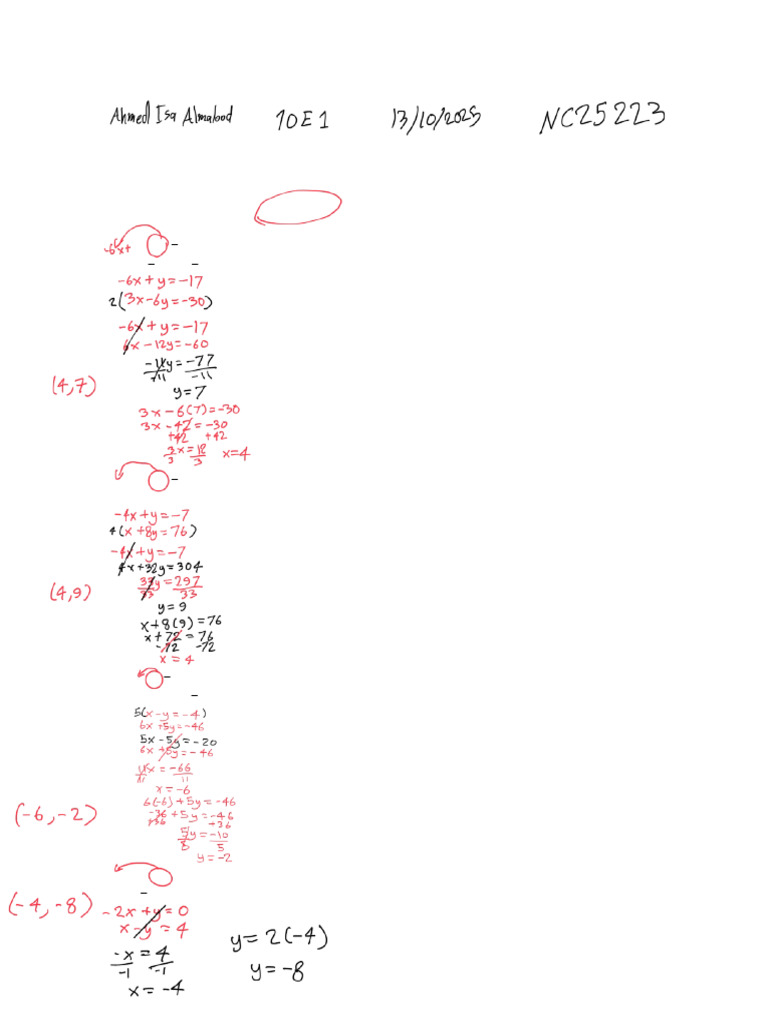 Ahmed Isa Almalood 10E1 13/10/2025 NC25223
-6x+ -
- -
-6x+y=-17
2(3x-6y=-30)
-6x+y=-17
6x-12y=-60
-11y=-77
-11 -11
(4,7)
y=7
3x-6(7)=-30
3x-42=-30
+42 +42
3x=18 x=4
3 3
-
-4x+y=-7
4(x+8y=76)
-4x+y=-7
4x+32y=304
33y=297
33 33
(4,9)
y=9
x+8(9)=76
x+72=76
-72 -72
x=4
-
-
5(x-y=-4)
6x+5y=-46
5x-5y=-20
6x+5y=-46
11x=-66
11 11
x=-6
6(-6)+5y=-46
(-6,-2)
-36+5y=-46
+36 +36
5y=-10
5 5
y=-2
-
(-4,-8)
-2x+y=0
x-y=4 y=2(-4)
-x=4
-1 -1 y=-8
x=-4